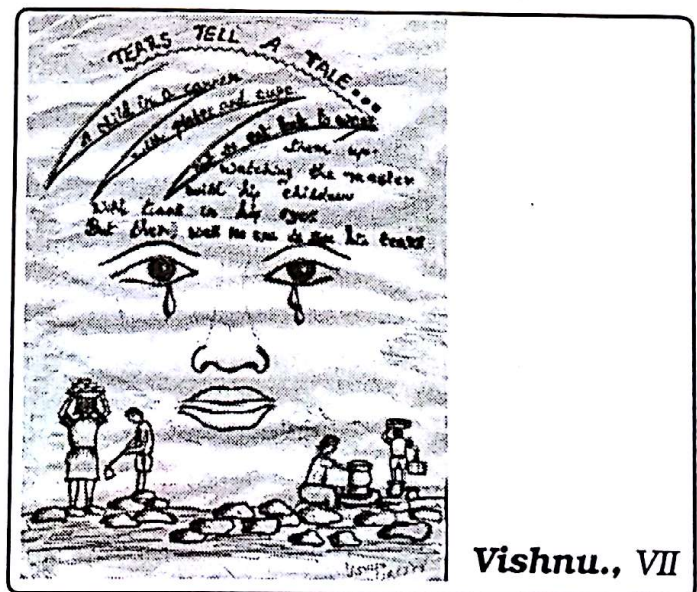 TEARS TELL A TALE...
A child in a corner
with plates and cups
not to eat but to wash
them up.
Watching the master
with his children
With tears in his eyes
But there, was no one to see his tears
Vishnu., VII